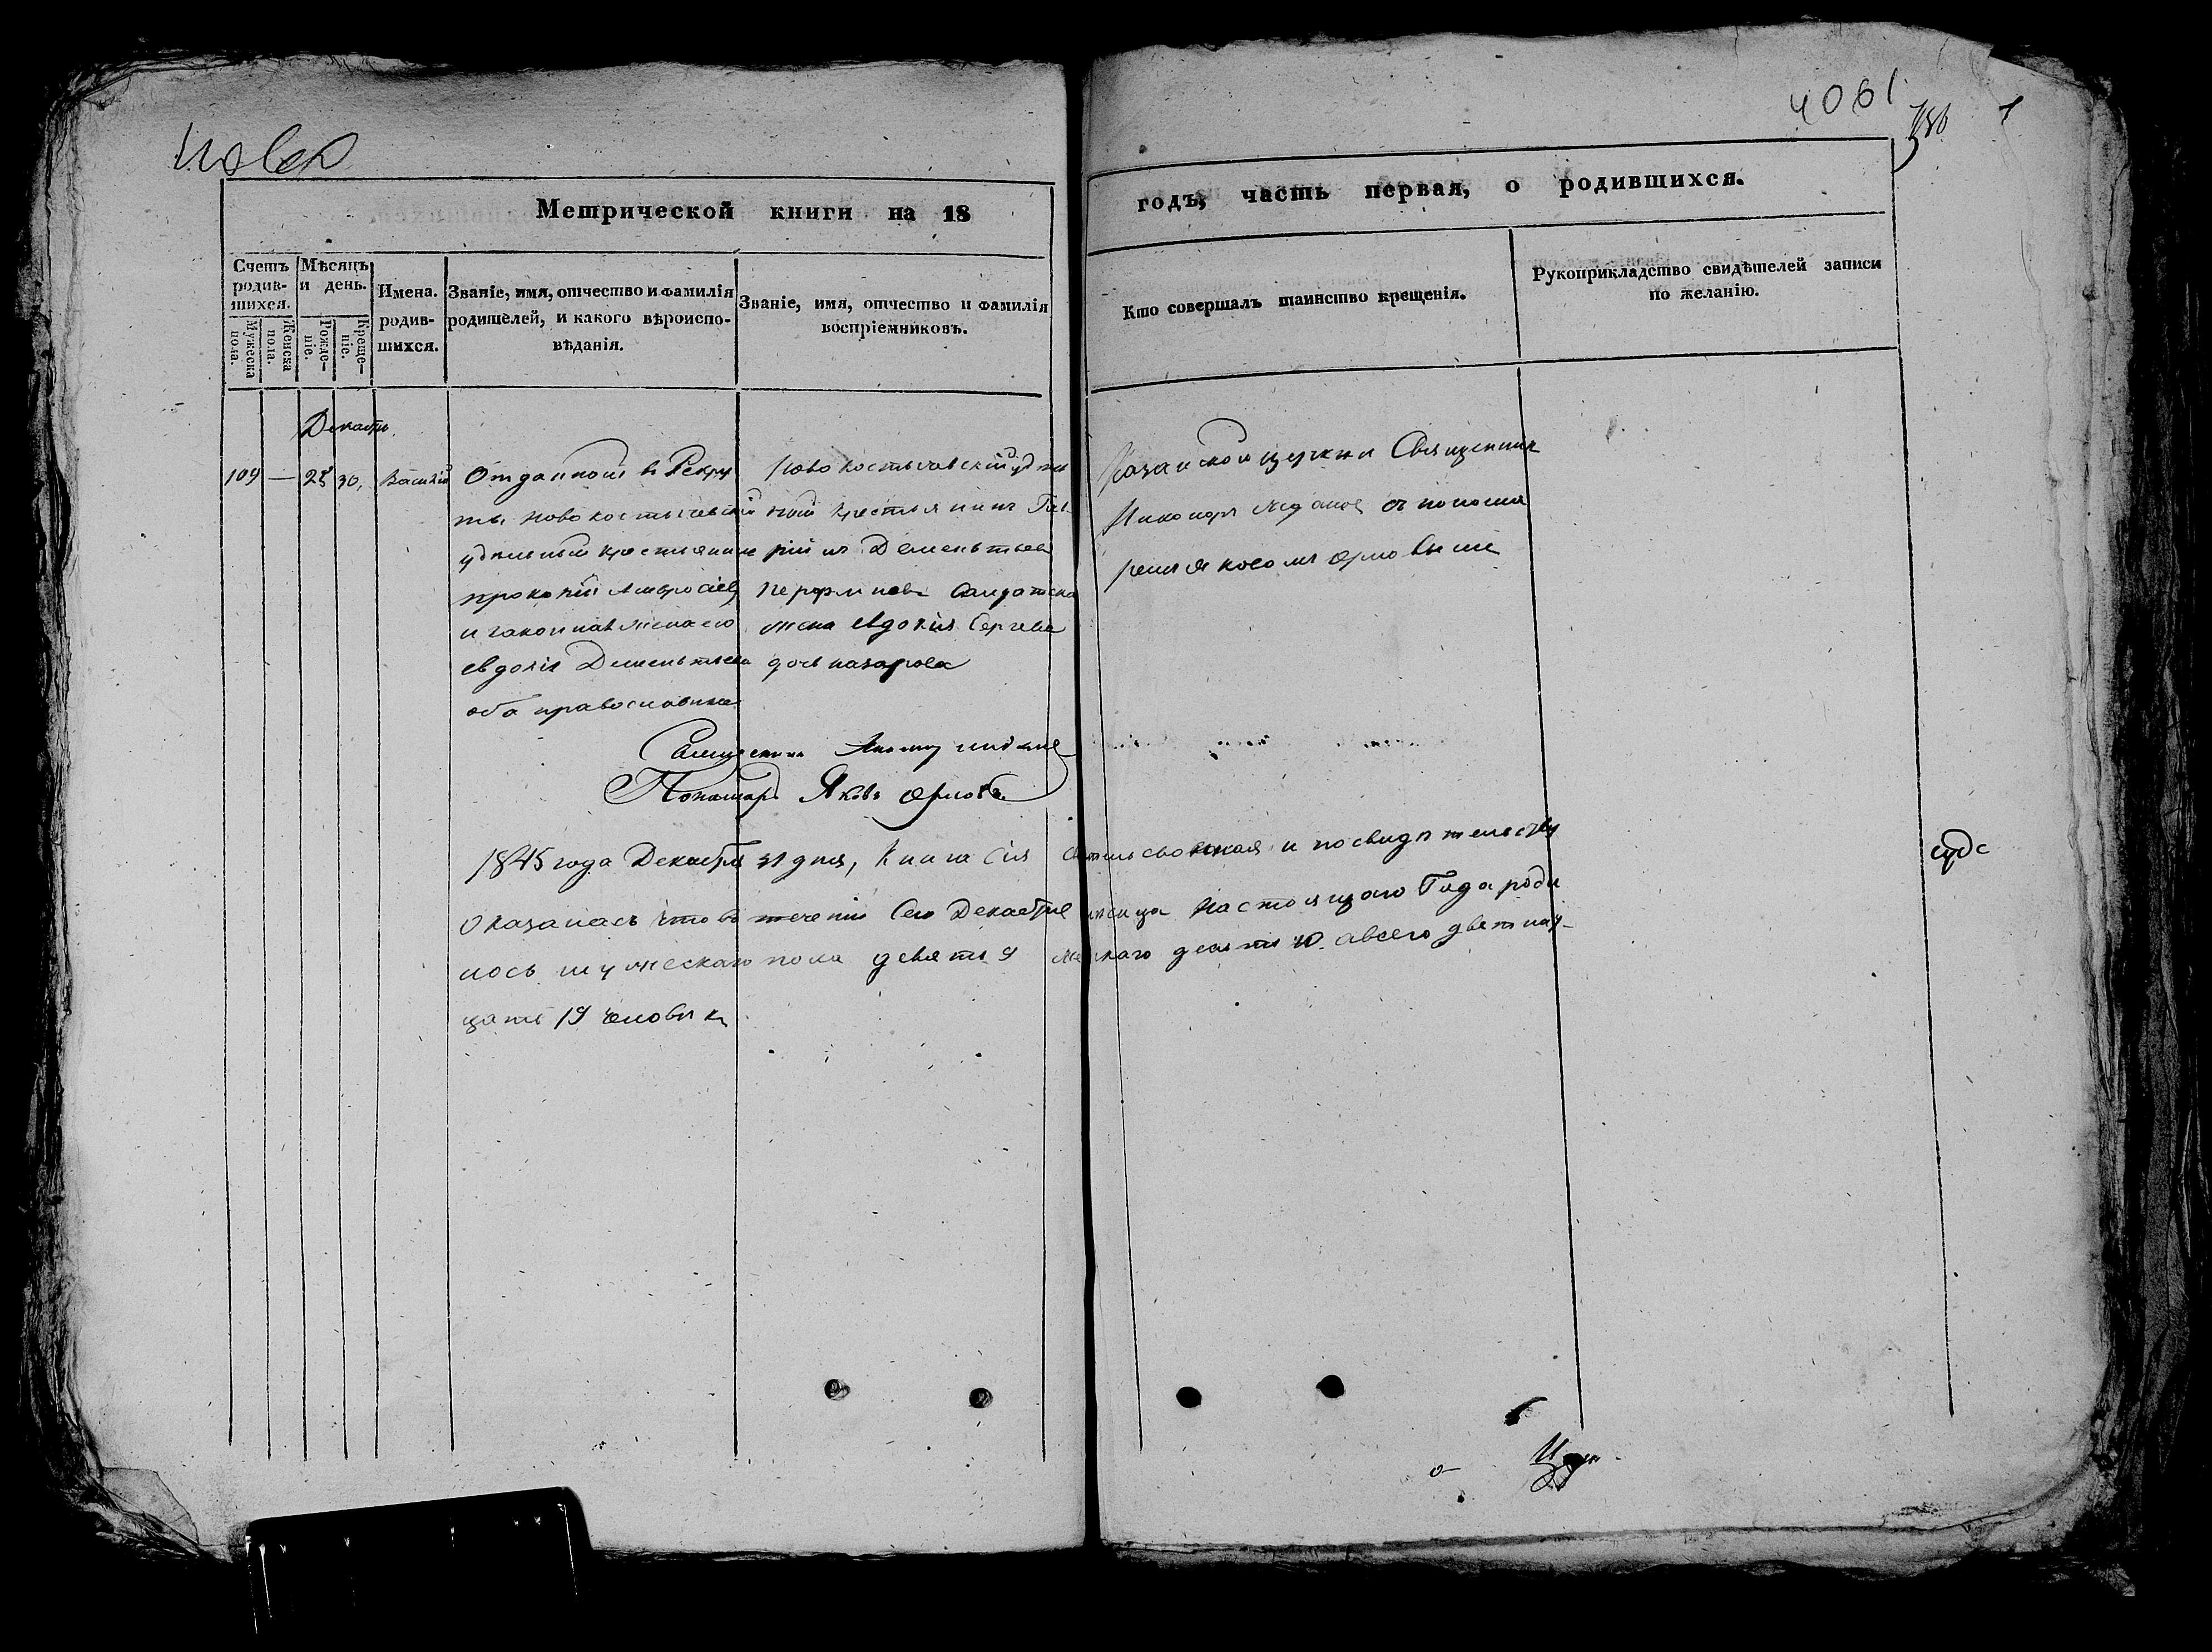 4061
Метрической книги на 18
годъ, часть первая, о родившихся.
Счетъ родив-шихся.
Мужеска пола.
Женска пола.
Мѣсяцъ и день.
Рожде-ніе.
Креще-ніе.
Имена. родив-шихся.
Званіе, имя, отчество и фамилія
родителей, и какого вѣроиспо-
вѣданія.
Званіе, имя, отчество и фамилія
воспріемниковъ.
Кто совершалъ таинство крещенія.
Рукоприкладство свидѣтелей записи
по желанію.
109 — 25 30, Василій
Отданной в Рекру
ты новокостычевскій
удѣльный крестьянинъ
прокопій Амвросіев
и законная жена его
евдокія Дементьева
оба православные
Новокостычевскій удѣль
ный крестьянинъ
Дементьев
Салдатска
жена евдокія Сергеева
дочь назарова
Казанской церкви Священник
съ понома
ремъ яковомъ орловымъ
Священникъ
Пономарь Яковъ орловъ
1845 года Декабря 31 дня, Книга Сія и по свидѣтельству
оказалась что въ теченіи Сего Декабря мѣсяца настоящаго Года роди
лось мужескаго пола девять 9 женскаго десять 10 а всего девятнад-
цать 19 человѣкъ